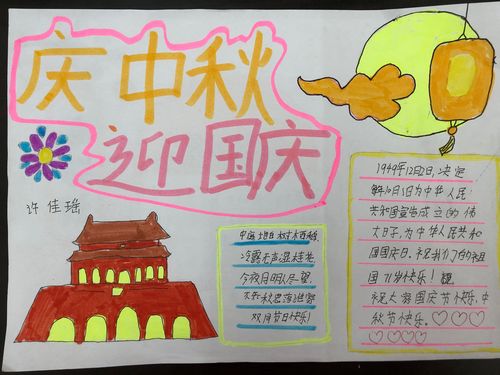 庆中秋
迎国庆
许佳瑶
中庭地白树栖鸦
冷露无声湿桂花
今夜月明人尽望
不知秋思落谁家
双月节日快乐!
1949年12月2日,决定
每年10月1日为中华人民
共和国宣告成立的伟
大日子,为中华人民共和
国国庆日。祝我们的祖
国71岁快乐!
祝大家国庆节快乐,中
秋节快乐。♡♡♡
♡♡♡♡